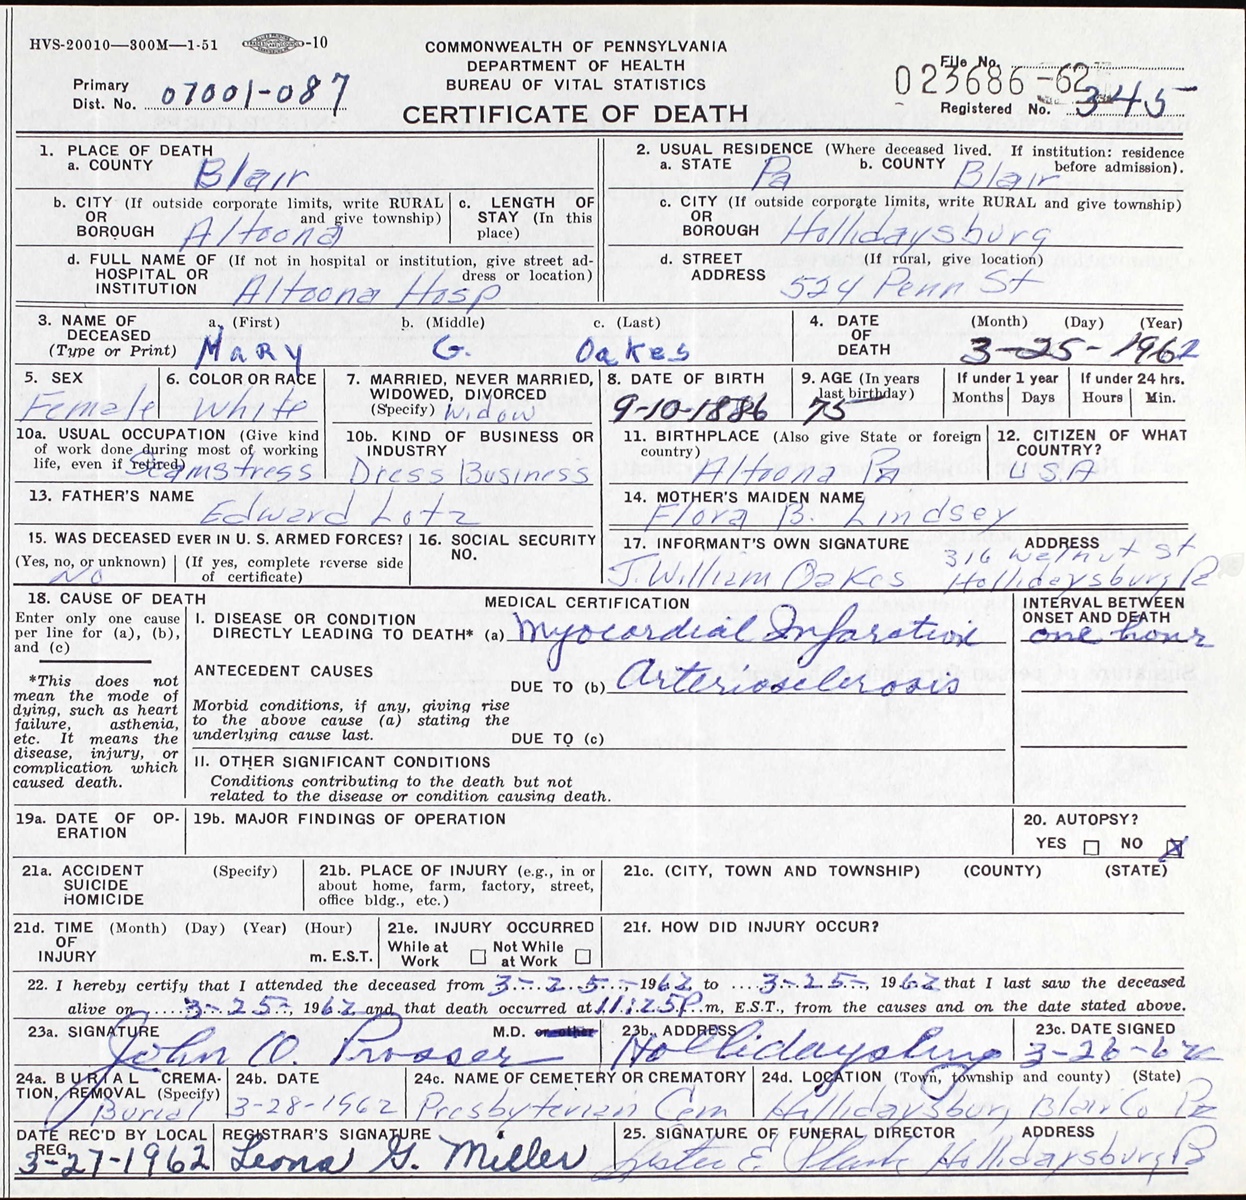 HVS-20010—300M—1-51 -10
COMMONWEALTH OF PENNSYLVANIA
DEPARTMENT OF HEALTH
BUREAU OF VITAL STATISTICS
CERTIFICATE OF DEATH
Primary
Dist. No. 07001-087
File No. 023686-62
Registered No. 345
1. PLACE OF DEATH
a. COUNTY Blair
2. USUAL RESIDENCE (Where deceased lived. If institution: residence before admission).
a. STATE Pa b. COUNTY Blair
b. CITY (If outside corporate limits, write RURAL
OR and give township)
BOROUGH Altoona
c. LENGTH OF
STAY (In this
place)
c. CITY (If outside corporate limits, write RURAL and give township)
OR
BOROUGH Hollidaysburg
d. FULL NAME OF (If not in hospital or institution, give street ad-
HOSPITAL OR dress or location)
INSTITUTION Altoona Hosp
d. STREET (If rural, give location)
ADDRESS 524 Penn St
3. NAME OF a. (First) b. (Middle) c. (Last)
DECEASED
(Type or Print) Mary G. Oakes
4. DATE (Month) (Day) (Year)
OF
DEATH 3-25-1962
5. SEX
Female
6. COLOR OR RACE
White
7. MARRIED, NEVER MARRIED,
WIDOWED, DIVORCED
(Specify) Widow
8. DATE OF BIRTH
9-10-1886
9. AGE (In years
last birthday)
75
If under 1 year
Months Days
If under 24 hrs.
Hours Min.
10a. USUAL OCCUPATION (Give kind
of work done during most of working
life, even if retired)
Seamstress
10b. KIND OF BUSINESS OR
INDUSTRY
Dress Business
11. BIRTHPLACE (Also give State or foreign
country)
Altoona Pa
12. CITIZEN OF WHAT
COUNTRY?
USA
13. FATHER'S NAME
Edward Lotz
14. MOTHER'S MAIDEN NAME
Flora B. Lindsey
15. WAS DECEASED EVER IN U. S. ARMED FORCES?
(Yes, no, or unknown) (If yes, complete reverse side
of certificate)
No
16. SOCIAL SECURITY
NO.
17. INFORMANT'S OWN SIGNATURE ADDRESS
J. William Oakes 316 Walnut St
Hollidaysburg Pa
18. CAUSE OF DEATH
Enter only one cause
per line for (a), (b),
and (c)
*This does not
mean the mode of
dying, such as heart
failure, asthenia,
etc. It means the
disease, injury, or
complication which
caused death.
MEDICAL CERTIFICATION
I. DISEASE OR CONDITION
DIRECTLY LEADING TO DEATH* (a) Myocardial Infarction
ANTECEDENT CAUSES
DUE TO (b) Arteriosclerosis
Morbid conditions, if any, giving rise
to the above cause (a) stating the
underlying cause last.
DUE TO (c)
II. OTHER SIGNIFICANT CONDITIONS
Conditions contributing to the death but not
related to the disease or condition causing death.
INTERVAL BETWEEN
ONSET AND DEATH
one hour
19a. DATE OF OP-
ERATION
19b. MAJOR FINDINGS OF OPERATION
20. AUTOPSY?
YES NO X
21a. ACCIDENT (Specify)
SUICIDE
HOMICIDE
21b. PLACE OF INJURY (e.g., in or
about home, farm, factory, street,
office bldg., etc.)
21c. (CITY, TOWN AND TOWNSHIP) (COUNTY) (STATE)
21d. TIME (Month) (Day) (Year) (Hour)
OF
INJURY m. E.S.T.
21e. INJURY OCCURRED
While at Work Not While at Work
21f. HOW DID INJURY OCCUR?
22. I hereby certify that I attended the deceased from 3-25-, 1962 to 3-25-, 1962 that I last saw the deceased
alive on 3-25-, 1962 and that death occurred at 11:25P.m, E.S.T., from the causes and on the date stated above.
23a. SIGNATURE M.D. or other
John O. Prosser
23b. ADDRESS
Hollidaysburg
23c. DATE SIGNED
3-26-62
24a. BURIAL, CREMA-
TION, REMOVAL (Specify)
Burial
24b. DATE
3-28-1962
24c. NAME OF CEMETERY OR CREMATORY
Presbyterian Cem
24d. LOCATION (Town, township and county) (State)
Hollidaysburg Blair Co Pa
DATE REC'D BY LOCAL
REG.
3-27-1962
REGISTRAR'S SIGNATURE
Leona G. Miller
25. SIGNATURE OF FUNERAL DIRECTOR ADDRESS
E. Hollidaysburg Pa